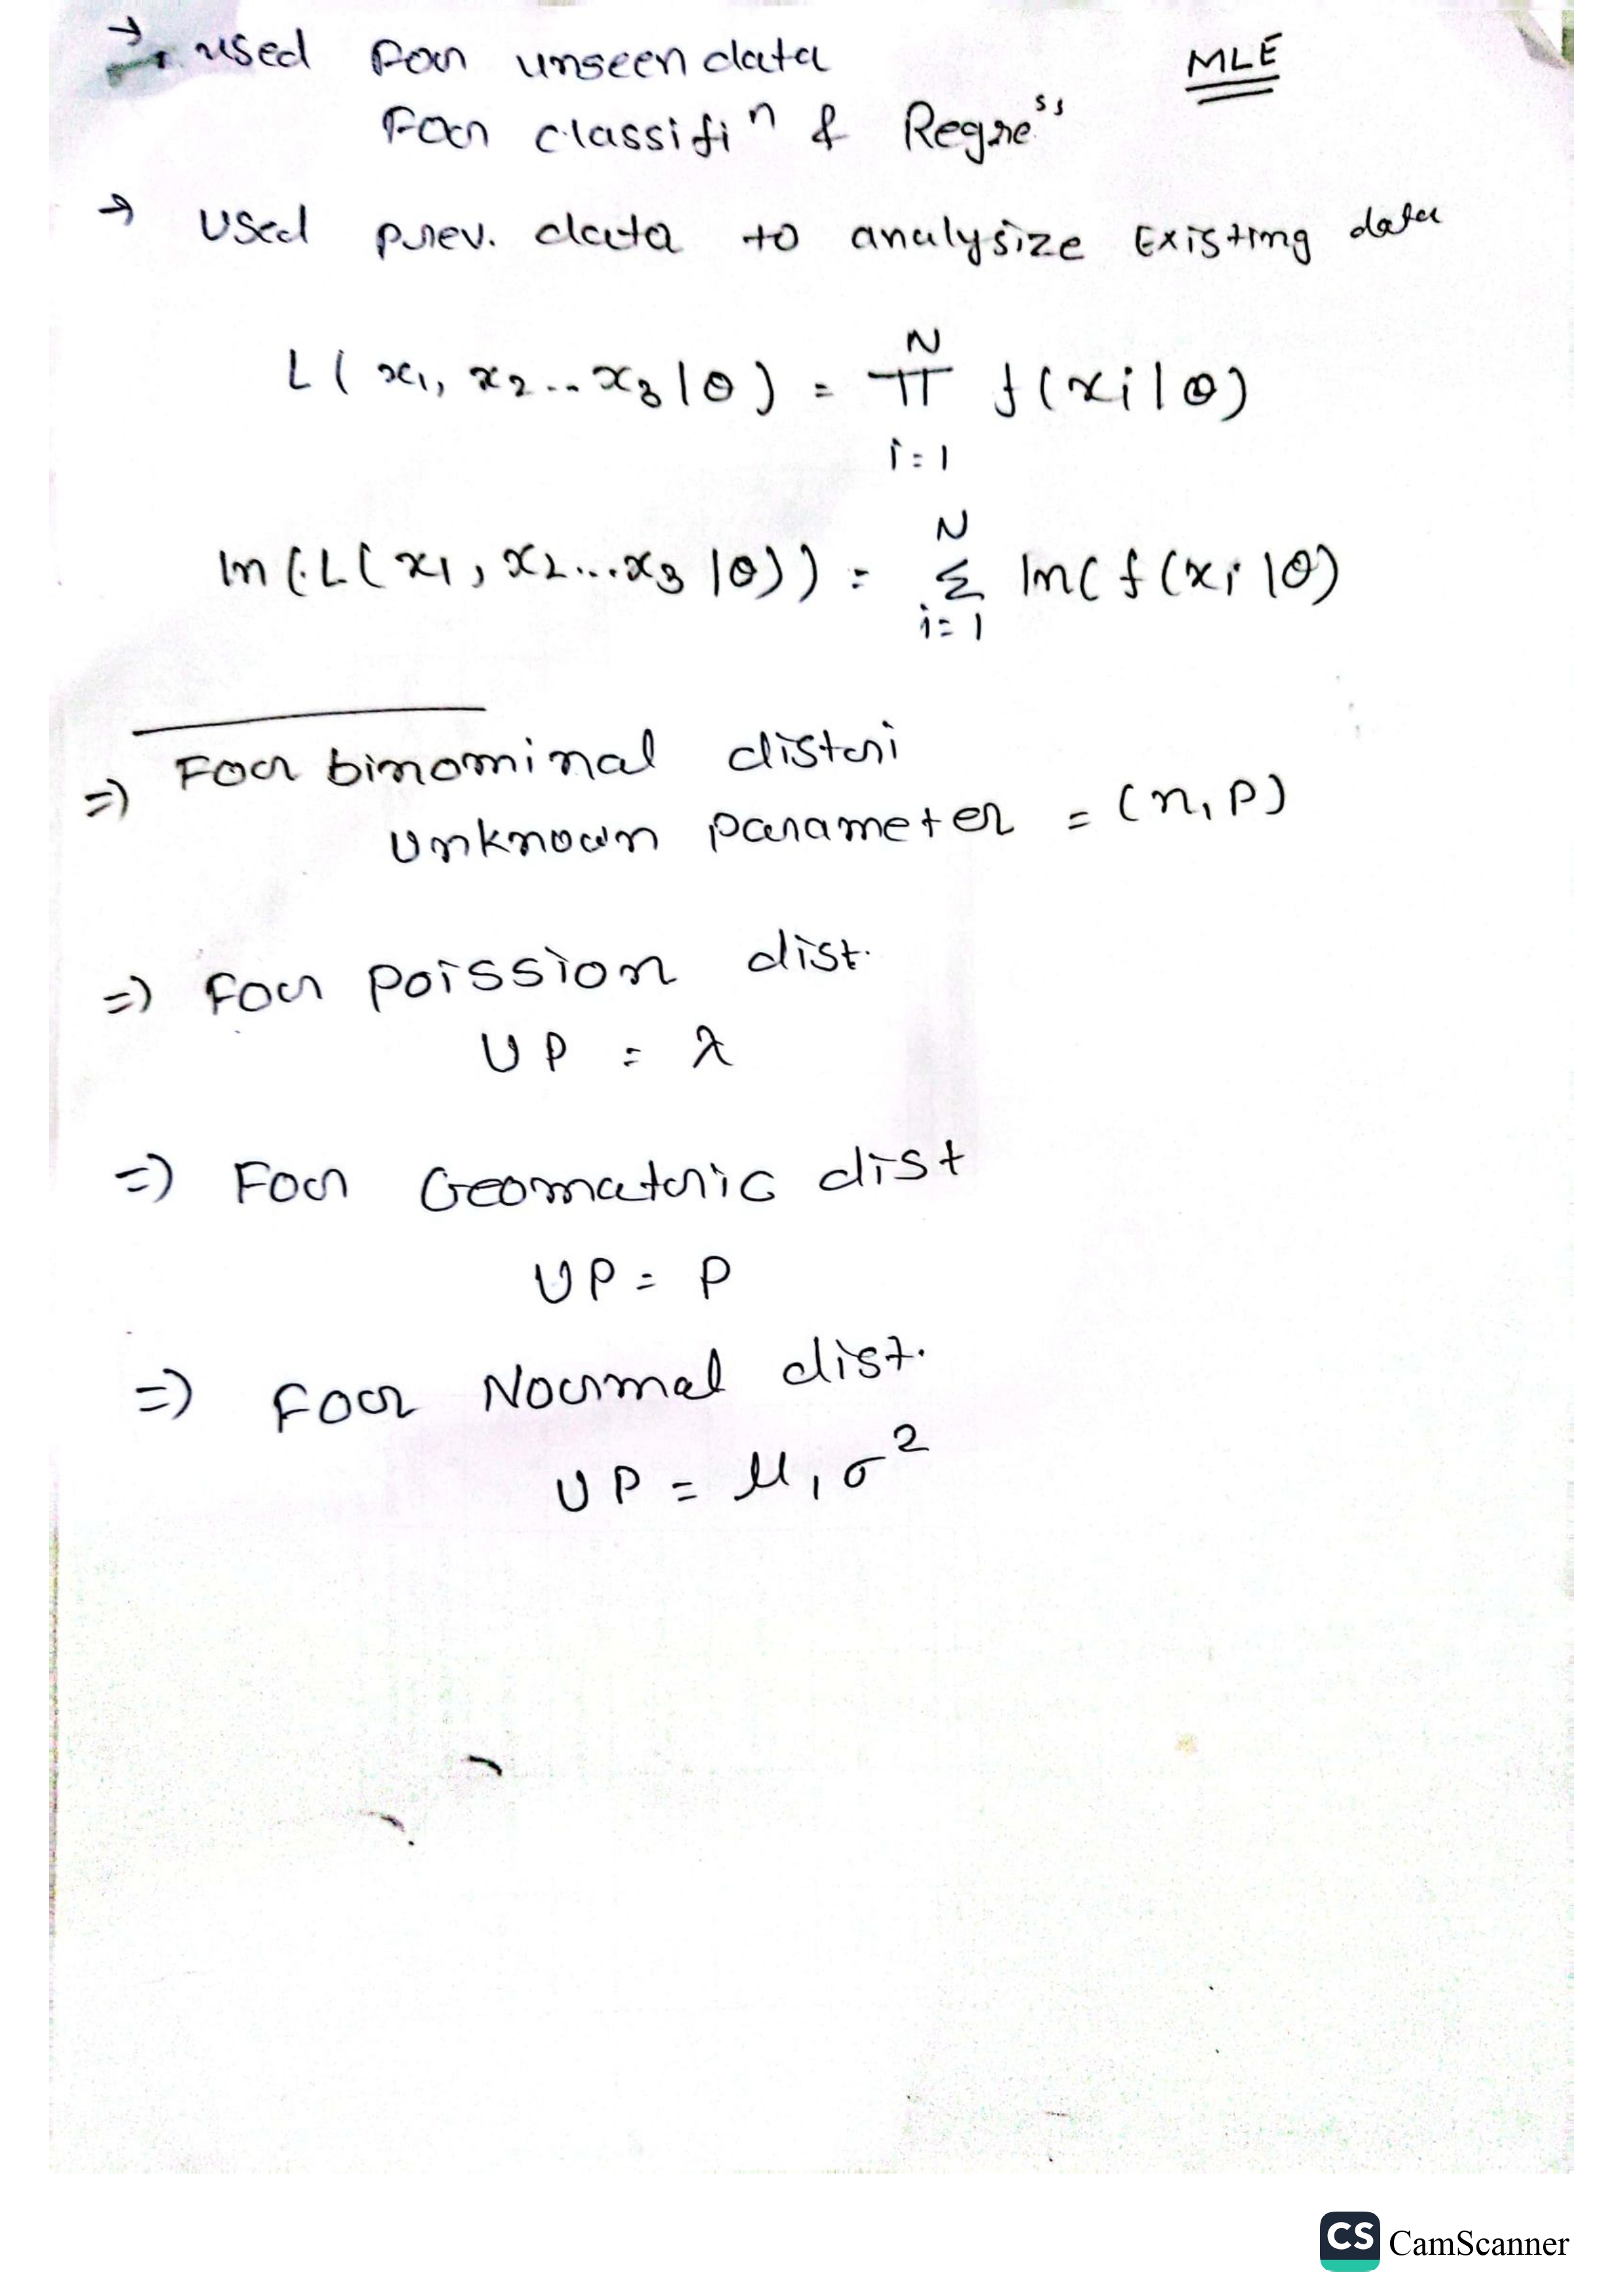 → used for unseen data MLE
For classifiⁿ & Regreˢˢ
→ Used prev. data to analysize Existing data
N
L ( x₁, x₂ .. x₃ | θ ) = π f ( xi | θ )
i = 1
N
ln ( L ( x₁ , x₂ ... x₃ | θ ) ) = Σ ln ( f ( xi | θ )
i = 1
⇒ For binominal distri
Unknown parameter = ( n, p )
⇒ For poission dist.
U P = λ
⇒ For Geomatric dist
U P = P
⇒ For Normal dist.
U P = μ, σ²
CS CamScanner